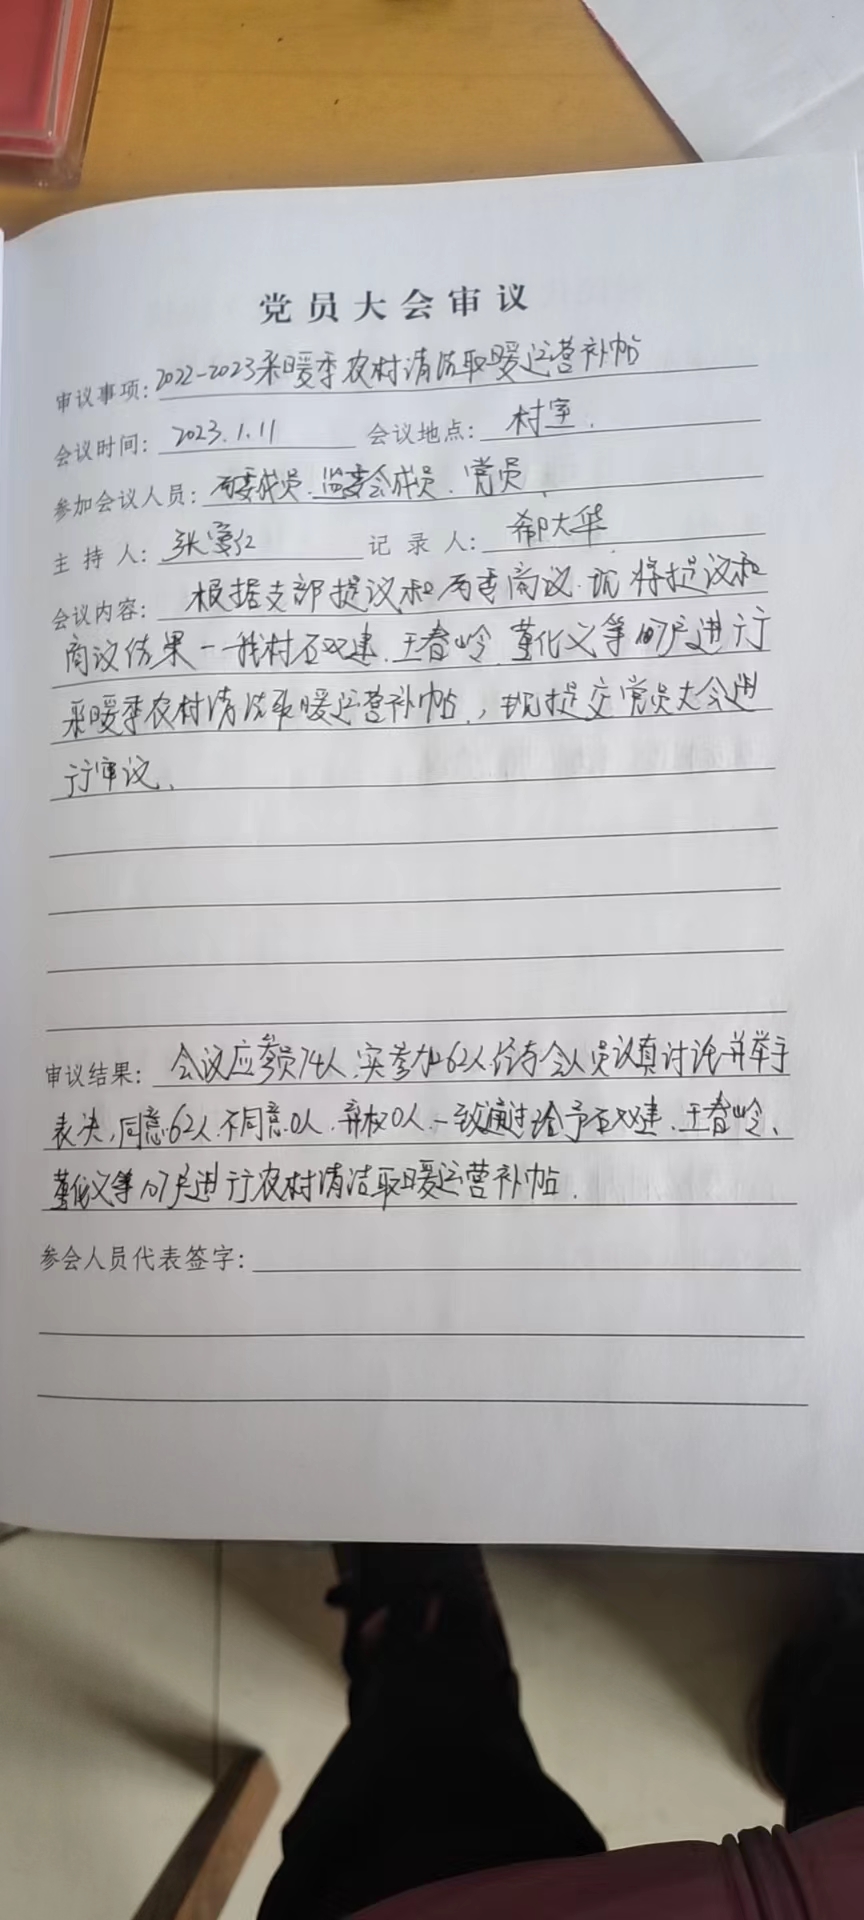 党员大会审议
审议事项: 2022-2023采暖季农村清洁取暖运营补帖
会议时间: 2023.1.11 会议地点: 村室.
参加会议人员: 两委成员、监委会成员、党员、
主持人: 张 记录人: 郗大华
会议内容: 根据支部提议和两委商议.现将提议和
商议结果一一我村石双建、王春岭、董化义等107户进行
采暖季农村清洁取暖运营补帖,现提交党员大会进
行审议、
审议结果: 会议应参员74人,实参加62人经与会人员认真讨论并举手
表决,同意62人.不同意0人.弃权0人.一致通过给予石双建、王春岭、
董化义等107户进行农村清洁取暖运营补帖.
参会人员代表签字: